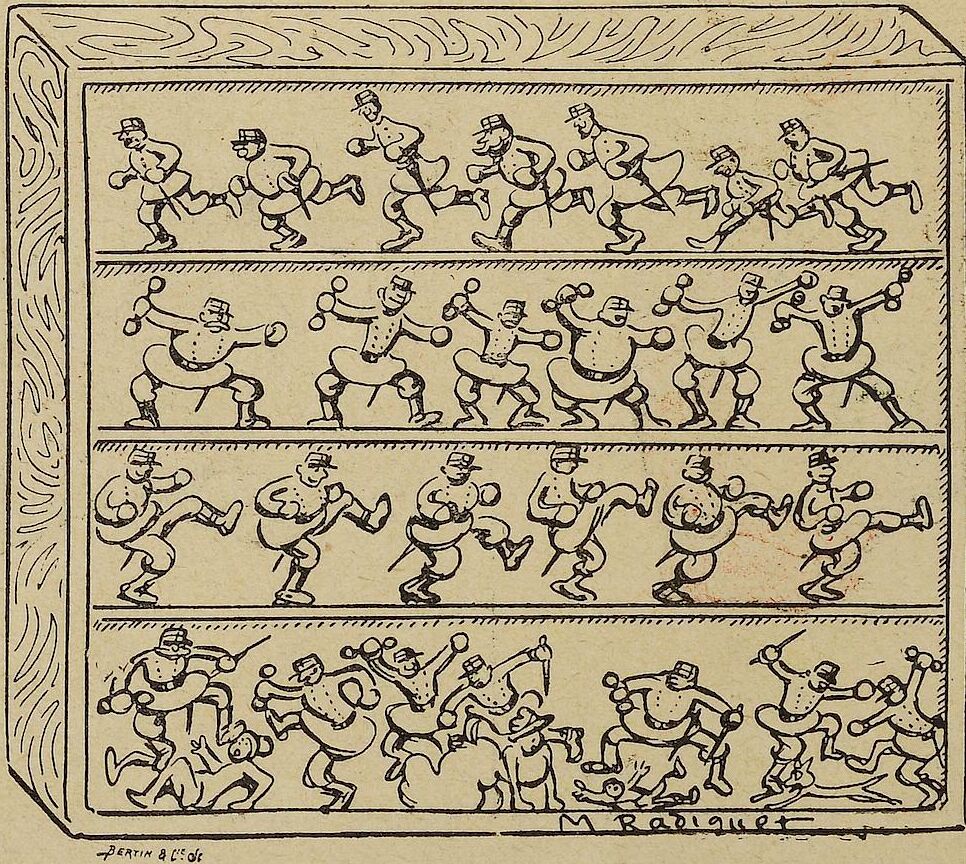 M Radiguet
BERTIN & Cie Sc